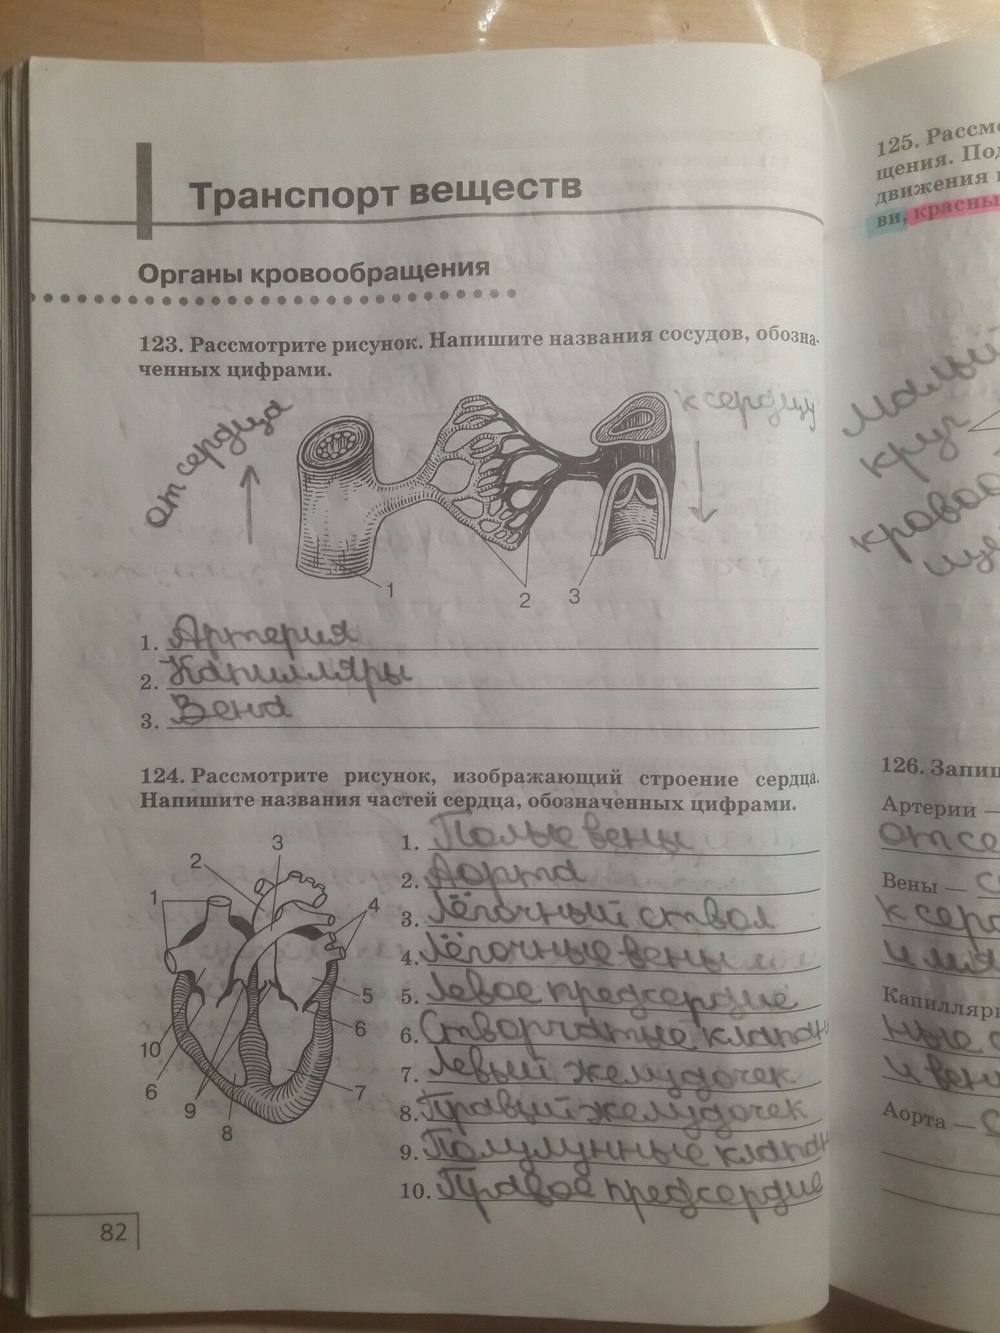 Транспорт веществ
Органы кровообращения
123. Рассмотрите рисунок. Напишите названия сосудов, обозна-
ченных цифрами.
от сердца
к сердцу
1
2
3
1. Артерия
2. Капилляры
3. Вена
124. Рассмотрите рисунок, изображающий строение сердца.
Напишите названия частей сердца, обозначенных цифрами.
3
2
1
4
5
6
7
10
6
9
8
1. Полые вены
2. Аорта
3. Лёгочный ствол
4. Лёгочные вены
5. Левое предсердие
6. Створчатые клапан
7. Левый желудочек
8. Правый желудочек
9. Полулунные клапан
10. Правое предсердие
82
125. Рассм
щения. Под
движения
ви, красны
малый
круг
кровоо
126. Запиш
Артерии —
от се
Вены — с
к серд
Капилляр
ные с
и вен
Аорта —